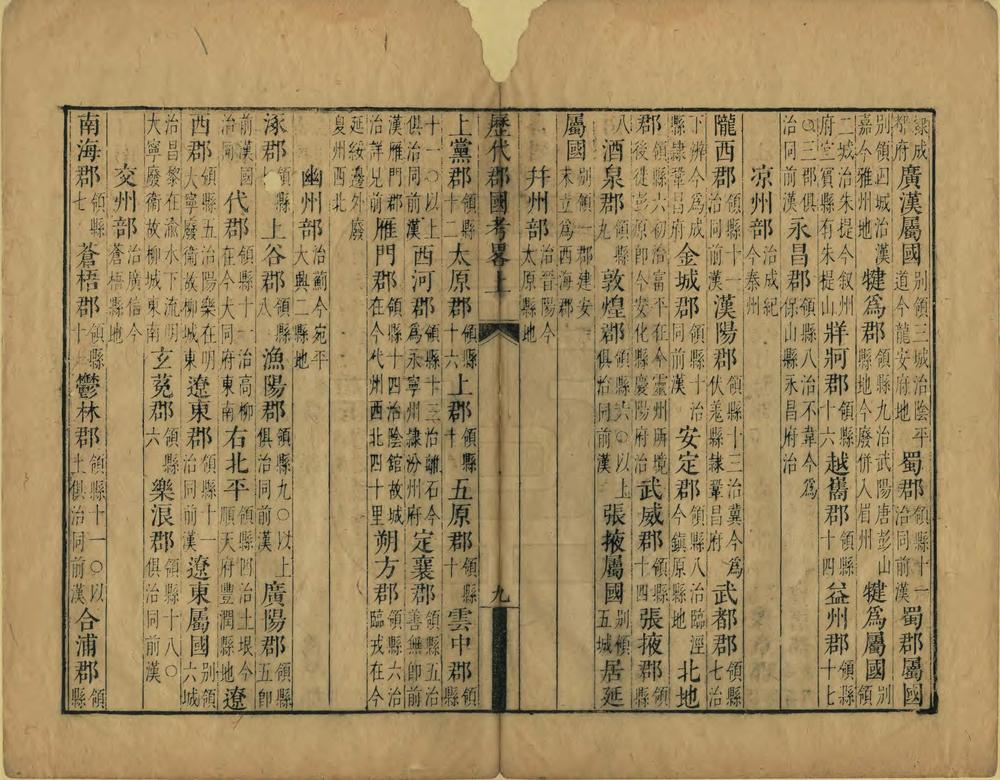 隸成都府廣漢屬國別領三城治陰平道今龍安府地蜀郡領縣十一治同前漢蜀郡屬國
別領四城治漢嘉今雅州地犍為郡領縣九治武陽唐彭山縣地今廢併入眉州犍為屬國別領
二城治朱提今叙州府宜賓縣有朱提山牂牁郡領縣十六越嶲郡領縣十四益州郡領縣十七
○三郡俱治同前漢永昌郡領縣八治不韋今為保山縣永昌府治
凉州部治成紀今秦州
隴西郡領縣十一治同前漢漢陽郡領縣十三治冀今為伏羗縣隸鞏昌府武都郡領縣七治
下辨今為成縣隸鞏昌府金城郡領縣十治同前漢安定郡領縣八治臨涇今鎮原縣地北地
郡領縣六初治富平在今靈州所境後徙彭原即今安化縣慶陽府治武威郡領縣十四張掖郡領縣
八酒泉郡領縣九敦煌郡領縣六○以上俱治同前漢張掖屬國別領五城居延
屬國別領一郡建安末立為西海郡
幷州部治晉陽今太原縣地
歷代郡國考畧上 九
上黨郡領縣十二太原郡領縣十六上郡領縣十五原郡領縣十雲中郡領縣
十一○以上俱治同前漢西河郡領縣十三治離石今為永寧州隸汾州府定襄郡領縣五治善無即前
漢雁門郡治詳見前雁門郡領縣十四治陰館故城在今代州西北四十里朔方郡領縣六治臨戎在今
延綏邊外廢夏州西北
幽州部治薊今宛平大興二縣地
涿郡領縣上谷郡領縣八漁陽郡領縣九○以上俱治同前漢廣陽郡領縣五即
前漢國治同代郡領縣十一治高柳在今大同府東南右北平領縣四治土垠今順天府豐潤縣地遼
西郡領縣五治陽樂在明大寧廢衛故柳城東遼東郡領縣十一治同前漢遼東屬國別領六城
治昌黎在渝水下流明大寧廢衛故柳城東南玄菟郡領縣六樂浪郡領縣十八○俱治同前漢
交州部治廣信今蒼梧縣地
南海郡領縣七蒼梧郡領縣十鬱林郡領縣十一○以上俱治同前漢合浦郡領縣